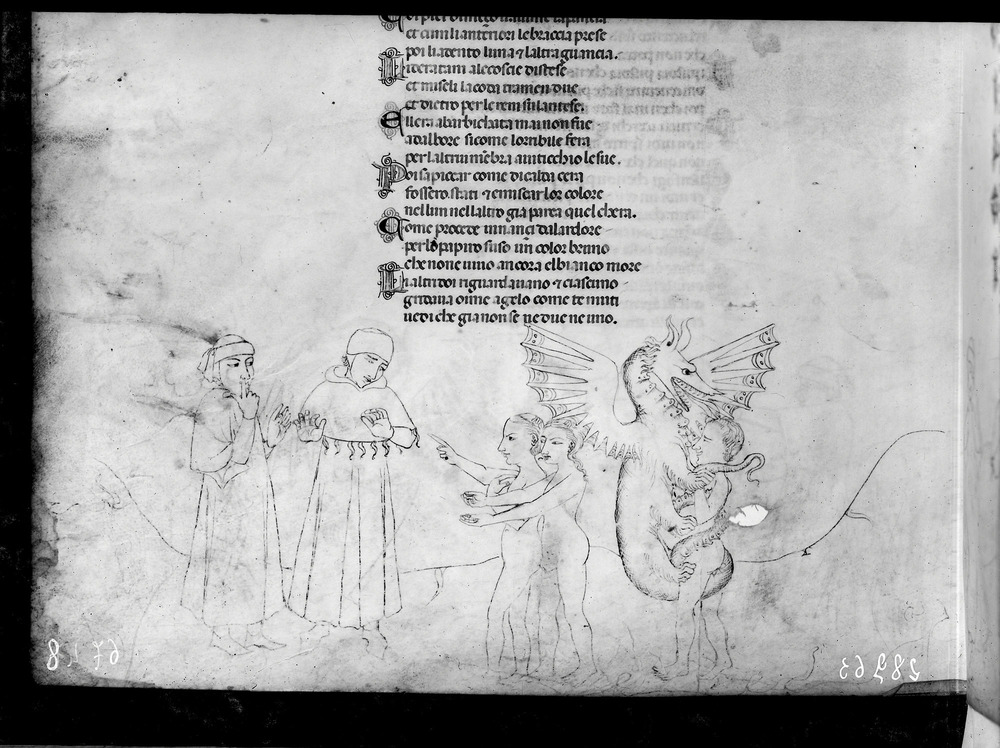 et cum li anteriori le braccia prese
poi li adento luna ⁊ laltra guancia.
Li deretani alecoscie distese
et miseli la coda tramendue
et dietro per le reni su latese.
Ellera abarbichata mai non fue
ad albore sicome lorribile fera
per laltrui mēbra auiticchio le sue.
Poi sapiccar come di calda cera
fossero stati ⁊ emiscar lor colore
ne lun nellaltro gia parea quel chera.
Come procede innanci dalardore
per lo papiro suso un color bruno
che none ancora el bianco more
Li altri doi riguardauano ⁊ ciascuno
gridaua oime agelo come te muti
uedi che gia non se ne due ne uno.